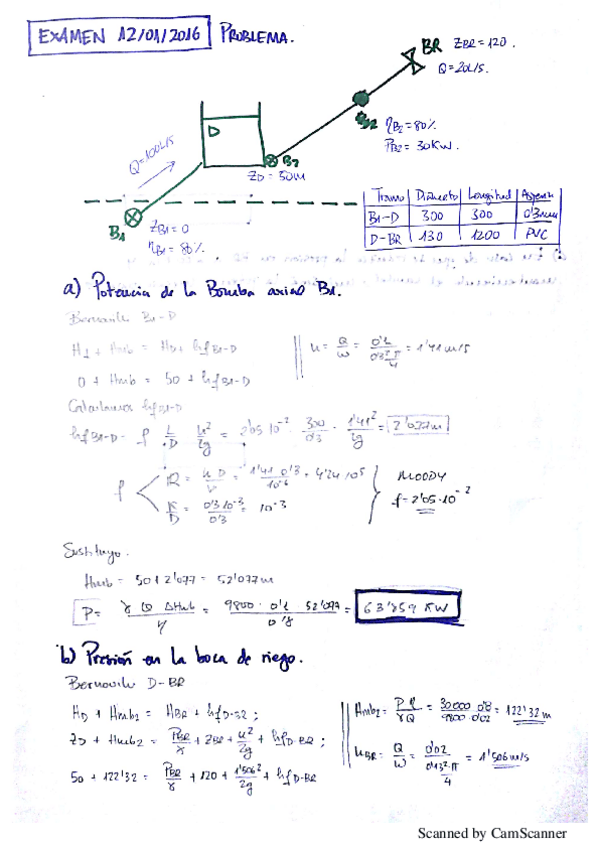 EXAMEN 12/01/2016 PROBLEMA.
BR ZBR = 120.
Q = 20L/S.
D
B2
ηB2 = 80%
PB2 = 30 KW.
Q = 100L/S
ZD = 50m
B1
ZB1 = 0
ηB1 = 80%
Tramo Diámetro Longitud
B1-D 300 300 0'3mm
D-BR 130 1200 PVC
a) Potencia de la Bomba axial B1.
Bernouilli B1-D
H1 + Hmb = HD + hfB1-D
0 + Hmb = 50 + hfB1-D
u = Q/W = 0'1/(0'3² π/4) = 1'41 m/s
Calculamos hfB1-D
hfB1-D = f L/D u²/2g = 2'05 10⁻² · 300/0'3 · 1'41²/2g = 2'077m
f
R = u D/ν = 1'41 0'3/10⁻⁶ = 4'24 10⁵
K/D = 0'3 10⁻³/0'3 = 10⁻³
MOODY
f = 2'05·10⁻²
Sustituyo.
Hmb = 50 + 2'077 = 52'077m
P = γ Q ΔHmb/η = 9800 · 0'1 52'077/0'8 = 63'859 KW
b) Presión en la boca de riego.
Bernouilli D-BR
HD + Hmb2 = HBR + hfD-B2 ;
ZD + Hmb2 = PBR/γ + ZBR + u²/2g + hfD-BR ;
50 + 122'32 = PBR/γ + 120 + 1'506²/2g + hfD-BR
Hmb2 = P η/γQ = 30000 · 0'8/9800 · 0'02 = 122'32 m
uBR = Q/W = 0'02/(0'13² π/4) = 1'506 m/s
Scanned by CamScanner